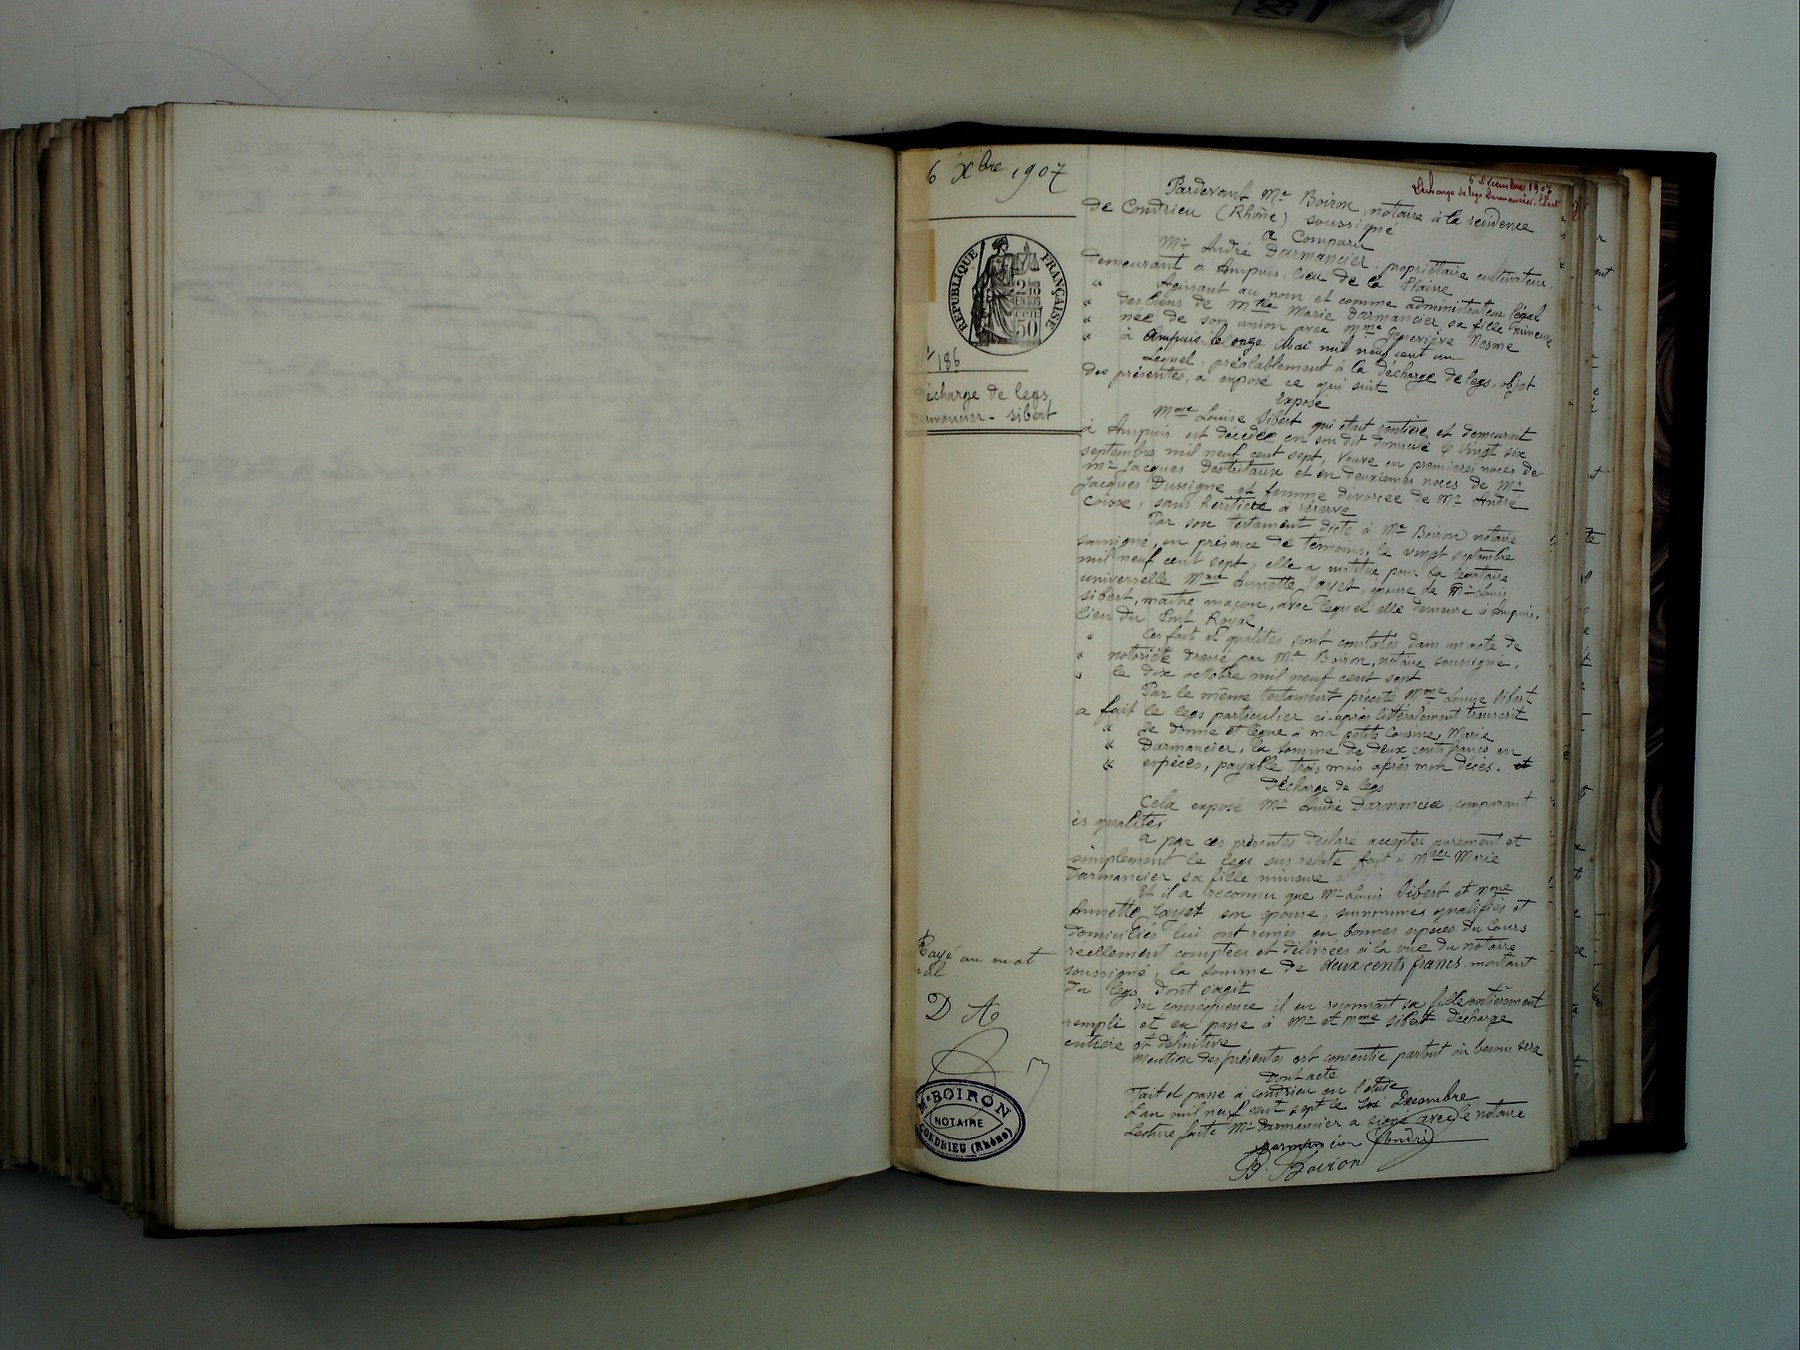 6 Xbre 1907
6 Décembre 1907
Décharge de legs Darmancier-Sibert
Pardevant Me Boiron, notaire à la résidence
de Condrieu (Rhône) soussigné
a Comparu
Mr André Darmancier, propriétaire cultivateur,
demeurant à Ampuis, lieu de la
" Agissant au nom et comme administrateur légal
" des biens de Mlle Marie Darmancier sa fille mineure
" née de son union avec Mme Geneviève Nesme
" à Ampuis le onze Mai mil neuf cent un
Lequel, préalablement à la décharge de legs, objet
des présentes, a exposé ce qui suit
Exposé
Mme Louise Sibert qui était rentière et demeurait
à Ampuis est décédée en son dit domicile le vingt six
septembre mil neuf cent sept, veuve en premières noces de
Mr Jacques et en deuxièmes noces de Mr
Jacques Dussigne et femme divorcée de Mr André
Coisse, sans héritier à réserve
Par son testament dicté à Me Boiron notaire
soussigné, en présence de témoins, le vingt septembre
mil neuf cent sept, elle a institué pour sa légataire
universelle Mme Annette Jayet, épouse de Mr Louis
Sibert, maître maçon, avec lequel elle demeure à Ampuis,
lieu du Pont Royal
" Ces faits et qualités sont constatés dans un acte de
" notoriété dressé par Me Boiron, notaire soussigné,
" le dix octobre mil neuf cent sept
Par le même testament précité Mme Louise Sibert
a fait le legs particulier ci-après littéralement transcrit
" Je donne et lègue à ma petite Cousine, Marie
" Darmancier, la somme de deux cents francs en
" espèces, payable trois mois après mon décès.
Décharge de legs
Cela exposé Mr André Darmancier, comparant
ès qualités
a par ces présentes déclaré accepter purement et
simplement le legs sus relaté fait à Melle Marie
Darmancier sa fille mineure
Et il a reconnu que Mr Louis Sibert et Mme
Annette Jayet son épouse, surnommés qualifiés et
domiciliés lui ont remis en bonnes espèces du cours
réellement comptées et délivrées à la vue du notaire
soussigné, la somme de deux cents francs montant
du legs dont s'agit
En conséquence il en reconnaît sa fille entièrement
rempli et en passe à Mr et Mme Sibert décharge
entière et définitive
Mention des présentes est consentie partout où besoin sera
Dont acte
Fait et passé à Condrieu en l'étude
L'an mil neuf cent sept le six Décembre
Lecture faite Mr Darmancier a signé avec le notaire
Darmancier André
B. Boiron
RÉPUBLIQUE FRANÇAISE
186
Décharge de legs
Darmancier - Sibert
Rayé un mot
nul
D A
B
Me BOIRON
NOTAIRE
CONDRIEU (Rhône)